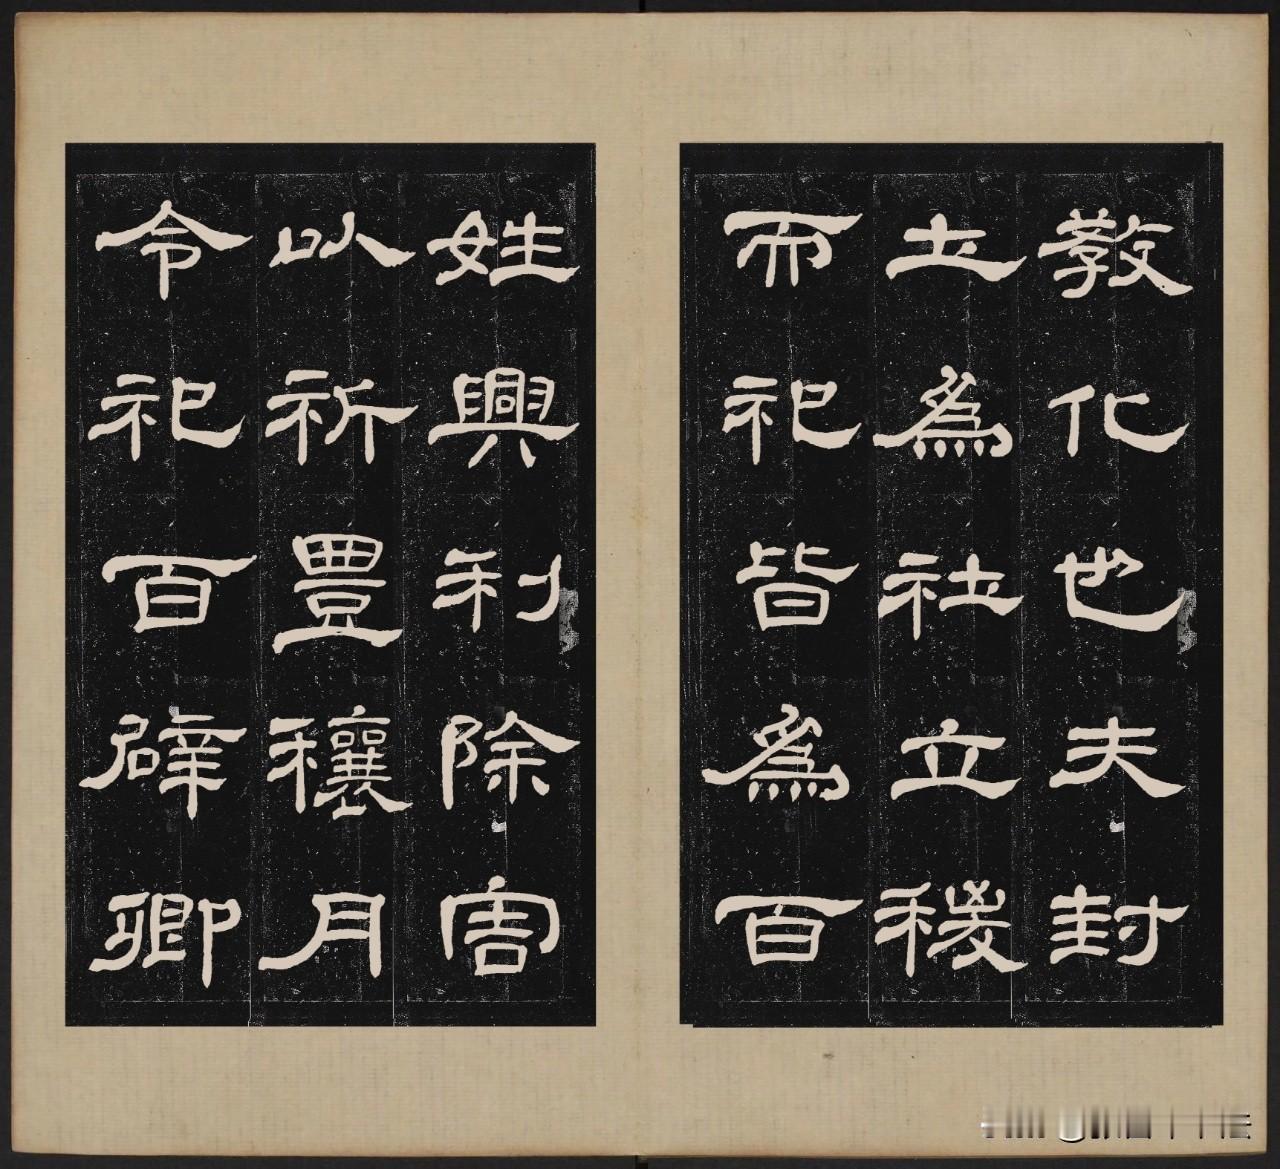 教化也夫封
土為社立稷
而祀皆為百
姓興利除害
以祈豊穰月
令祀百辟卿